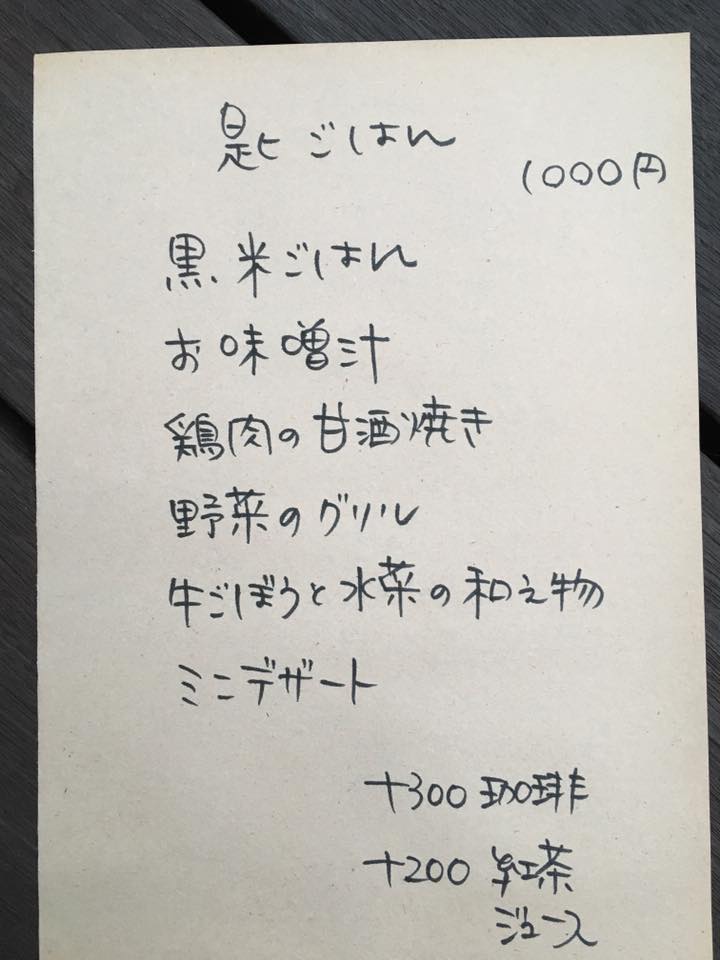 匙ごはん
1000円
黒米ごはん
お味噌汁
鶏肉の甘酒焼き
野菜のグリル
牛ごぼうと水菜の和え物
ミニデザート
+300 珈琲
+200 紅茶
ジュース